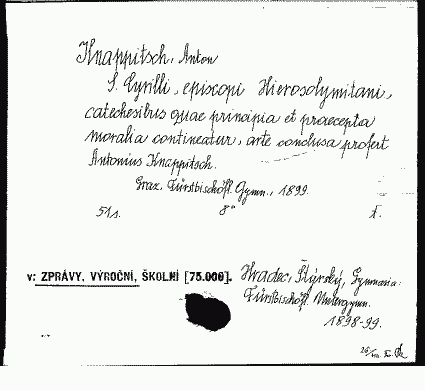 Knappitsch, Anton
S. Cyrilli, episcopi Hierosolymitani,
catechesibus quae principia et praecepta
moralia contineatur, arte conclusa profert
Antonius Knappitsch.
Graz, Fürstbischöfl. Gymn., 1899.
51 s. 8° I.
v: ZPRÁVY, VÝROČNÍ, ŠKOLNÍ [75.000].
Hradec, Štýrský, Gymnasia:
Fürstbischöfl. Untergymn.
1898-99.